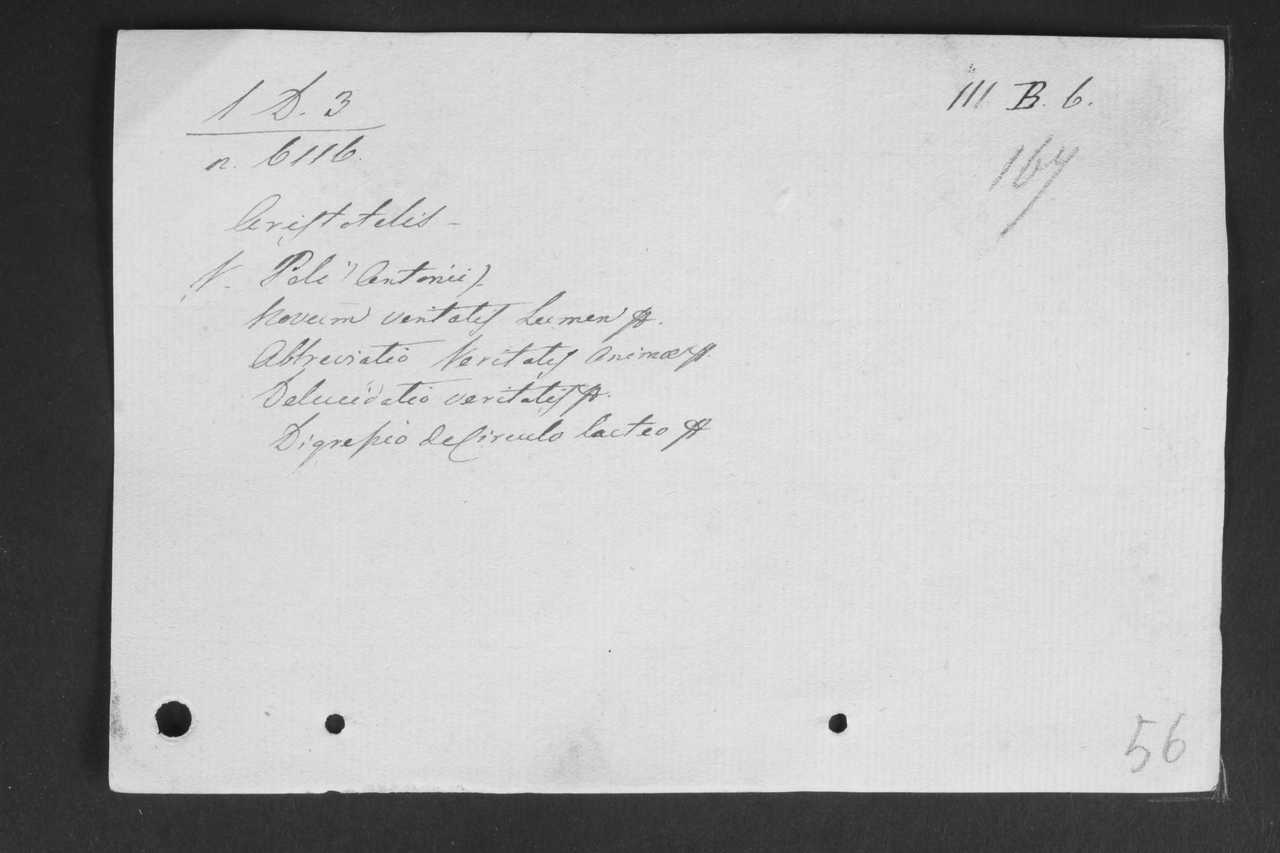 1 D. 3
III B. 6.
n. 6116.
167
Aristotelis -
V. Poli (Antonii)
Novum veritatis Lumen
Abbreviatio Veritatis Animæ
Delucidatio veritatis
Digressio de Circulo lacteo
56